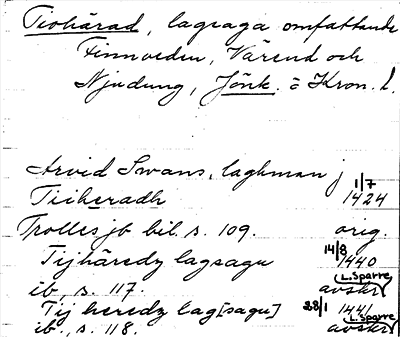 Tiohärad, lagsaga omfattande
Finnveden, Värend och
Njudung, Jönk. o Kron. l.
Arvid Swans, laghman j
Tiiheradh 1/7 1424
Trolles jb bil. s. 109. orig.
Tijhäredz lagsagu 14/8 1440
ib., s. 117. (L. Sparre) avskr
Tij heredz lag[sagu] 28/1 144
ib., s. 118. (L. Sparre) avskr